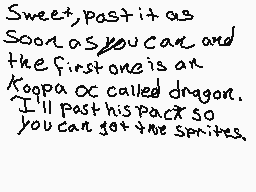 Sweet, post it as
soon as you can and
the first one is an
Koopa oc called dragon.
I'll post his pack so
you can got the sprites.